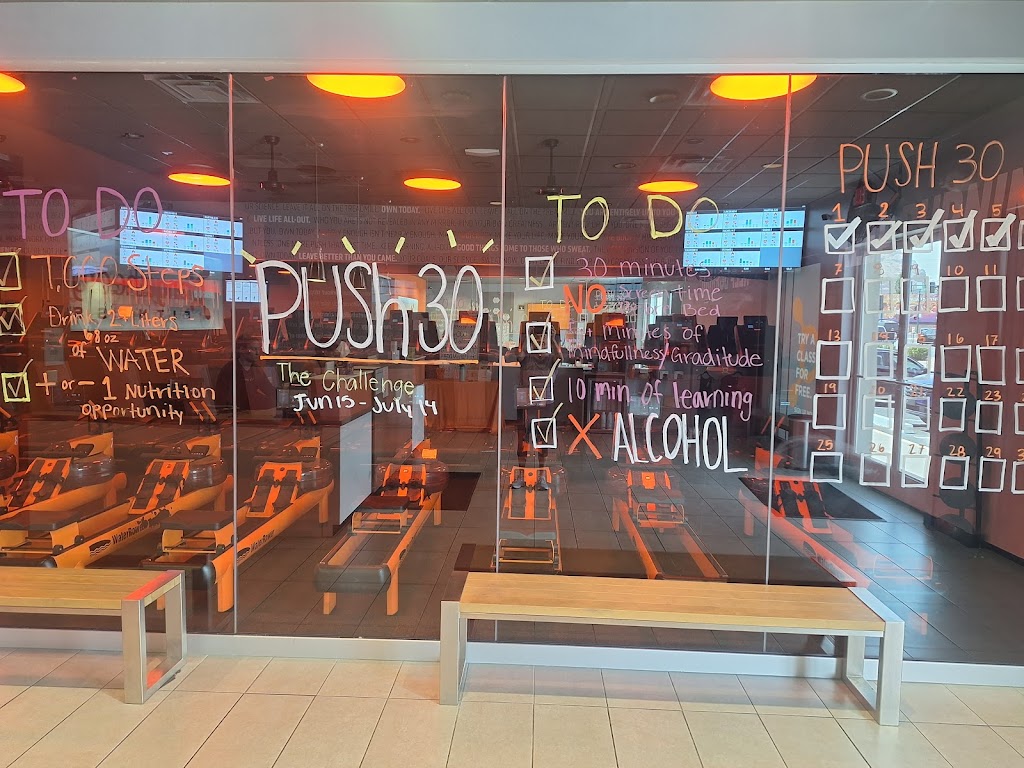 TO DO
7,000 Steps
Drink 2 Liters
68 oz
of WATER
+ or - 1 Nutrition
opportunity
LIVE LIFE ALL-OUT.
OWN TODAY.
LEAVE BETTER THAN YOU CAME.
GOOD THINGS COME TO THOSE WHO SWEAT.
PUSH 30
The Challenge
Jun 15 - July 14
TO DO
30 minutes
NO Screen Time
Bed
minutes of
mindfullness/Graditude
10 min of learning
X ALCOHOL
TRY A
CLASS
FOR
FREE.
PUSH 30
1 2 3 4 5
7 8 9 10 11
13 16 17
19 22 23
25 26 27 28 29
WaterRower